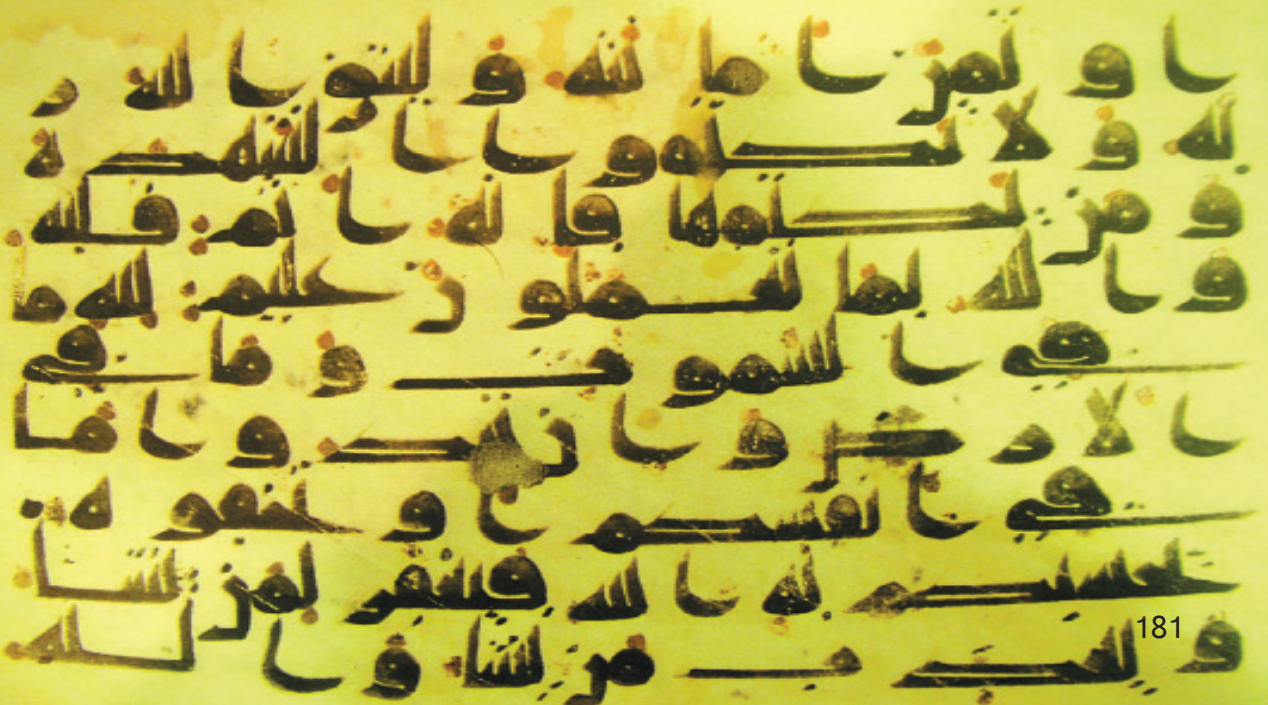 اوتمن امنته وليتق الله ر
به ولا تكتموا الشهدة
ومن يكتمها فانه اثم قلبه
والله بما تعملون عليم لله ما
في السموت وما في
الارض وان تبدوا ما
في انفسكم او تخفوه
يحسبكم به الله فيغفر لمن يشا
181
ويعذب من يشا والله